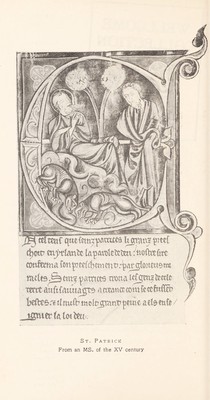 A cel tens que seinz patrices li granz pree
choit en yrlande la parole de deu ; nostre sire
conferma son preeschement ; par glorieus mi
racles. Seinz patrices trova les genz de cele
terre ausi sauvages a creance com se ce fussent
bestes ; e il mist molt grand peine a els ense
ignier la loi deu.
ST. PATRICK
From an MS. of the XV century